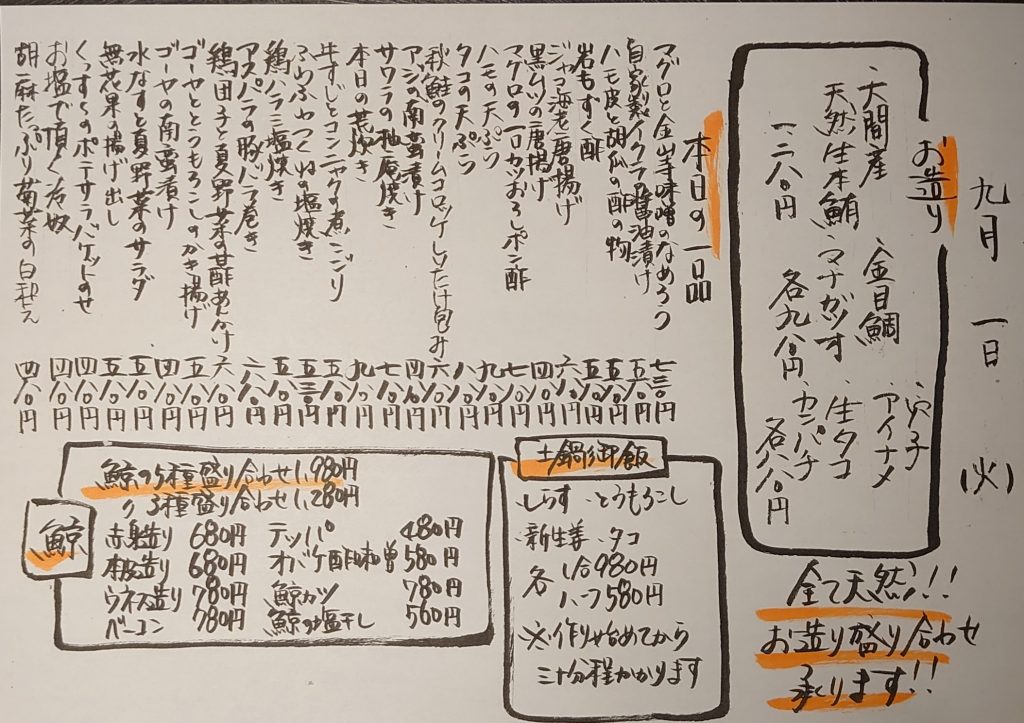 九月一日(火)
お造り
・大間産
天然生本鮪
一二八〇円
・金目鯛
・マナガツオ
各九八〇円
・穴子
・アイナメ
・生タコ
・カンパチ
各八八〇円
全て天然!!
お造り盛り合わせ
承ります!!
本日の一品
マグロと金山寺味噌のなめろう 七三〇円
自家製イクラ醤油漬け
ハモ皮と胡瓜の酢の物
岩もずく酢
ジャコ海老唐揚げ
黒ムツの唐揚げ
マグロの一口カツおろしポン酢
ハモの天ぷら
タコの天ぷら
秋鮭のクリームコロッケしいたけ包み
アジの南蛮漬け
サワラの柚庵焼き
本日の荒炊き
牛すじとコンニャクの煮こごり
ふわふわつくねの塩焼き 五三〇円
鶏ハラミ塩焼き
アスパラの豚バラ巻き
鶏団子と夏野菜の甘酢あんかけ
ゴーヤととうもろこしのかき揚げ
ゴーヤの南蛮漬け
水なすと夏野菜のサラダ
無花果の揚げ出し
くんすくのポテサラバケットのせ
お塩で頂く冷奴
胡麻たっぷり菊菜の白和え
土鍋御飯
・しらす ・とうもろこし
・新生姜 ・タコ
各 1合980円
ハーフ580円
※作り始めてから
三十分程かかります
鯨
鯨の5種盛り合わせ1,980円
〃 3種盛り合わせ1,280円
赤身造り 680円
本皮造り 680円
ウネス造り 780円
ベーコン 780円
テッパ 480円
オバケ酢味噌 580円
鯨カツ 780円
鯨の塩干し 500円